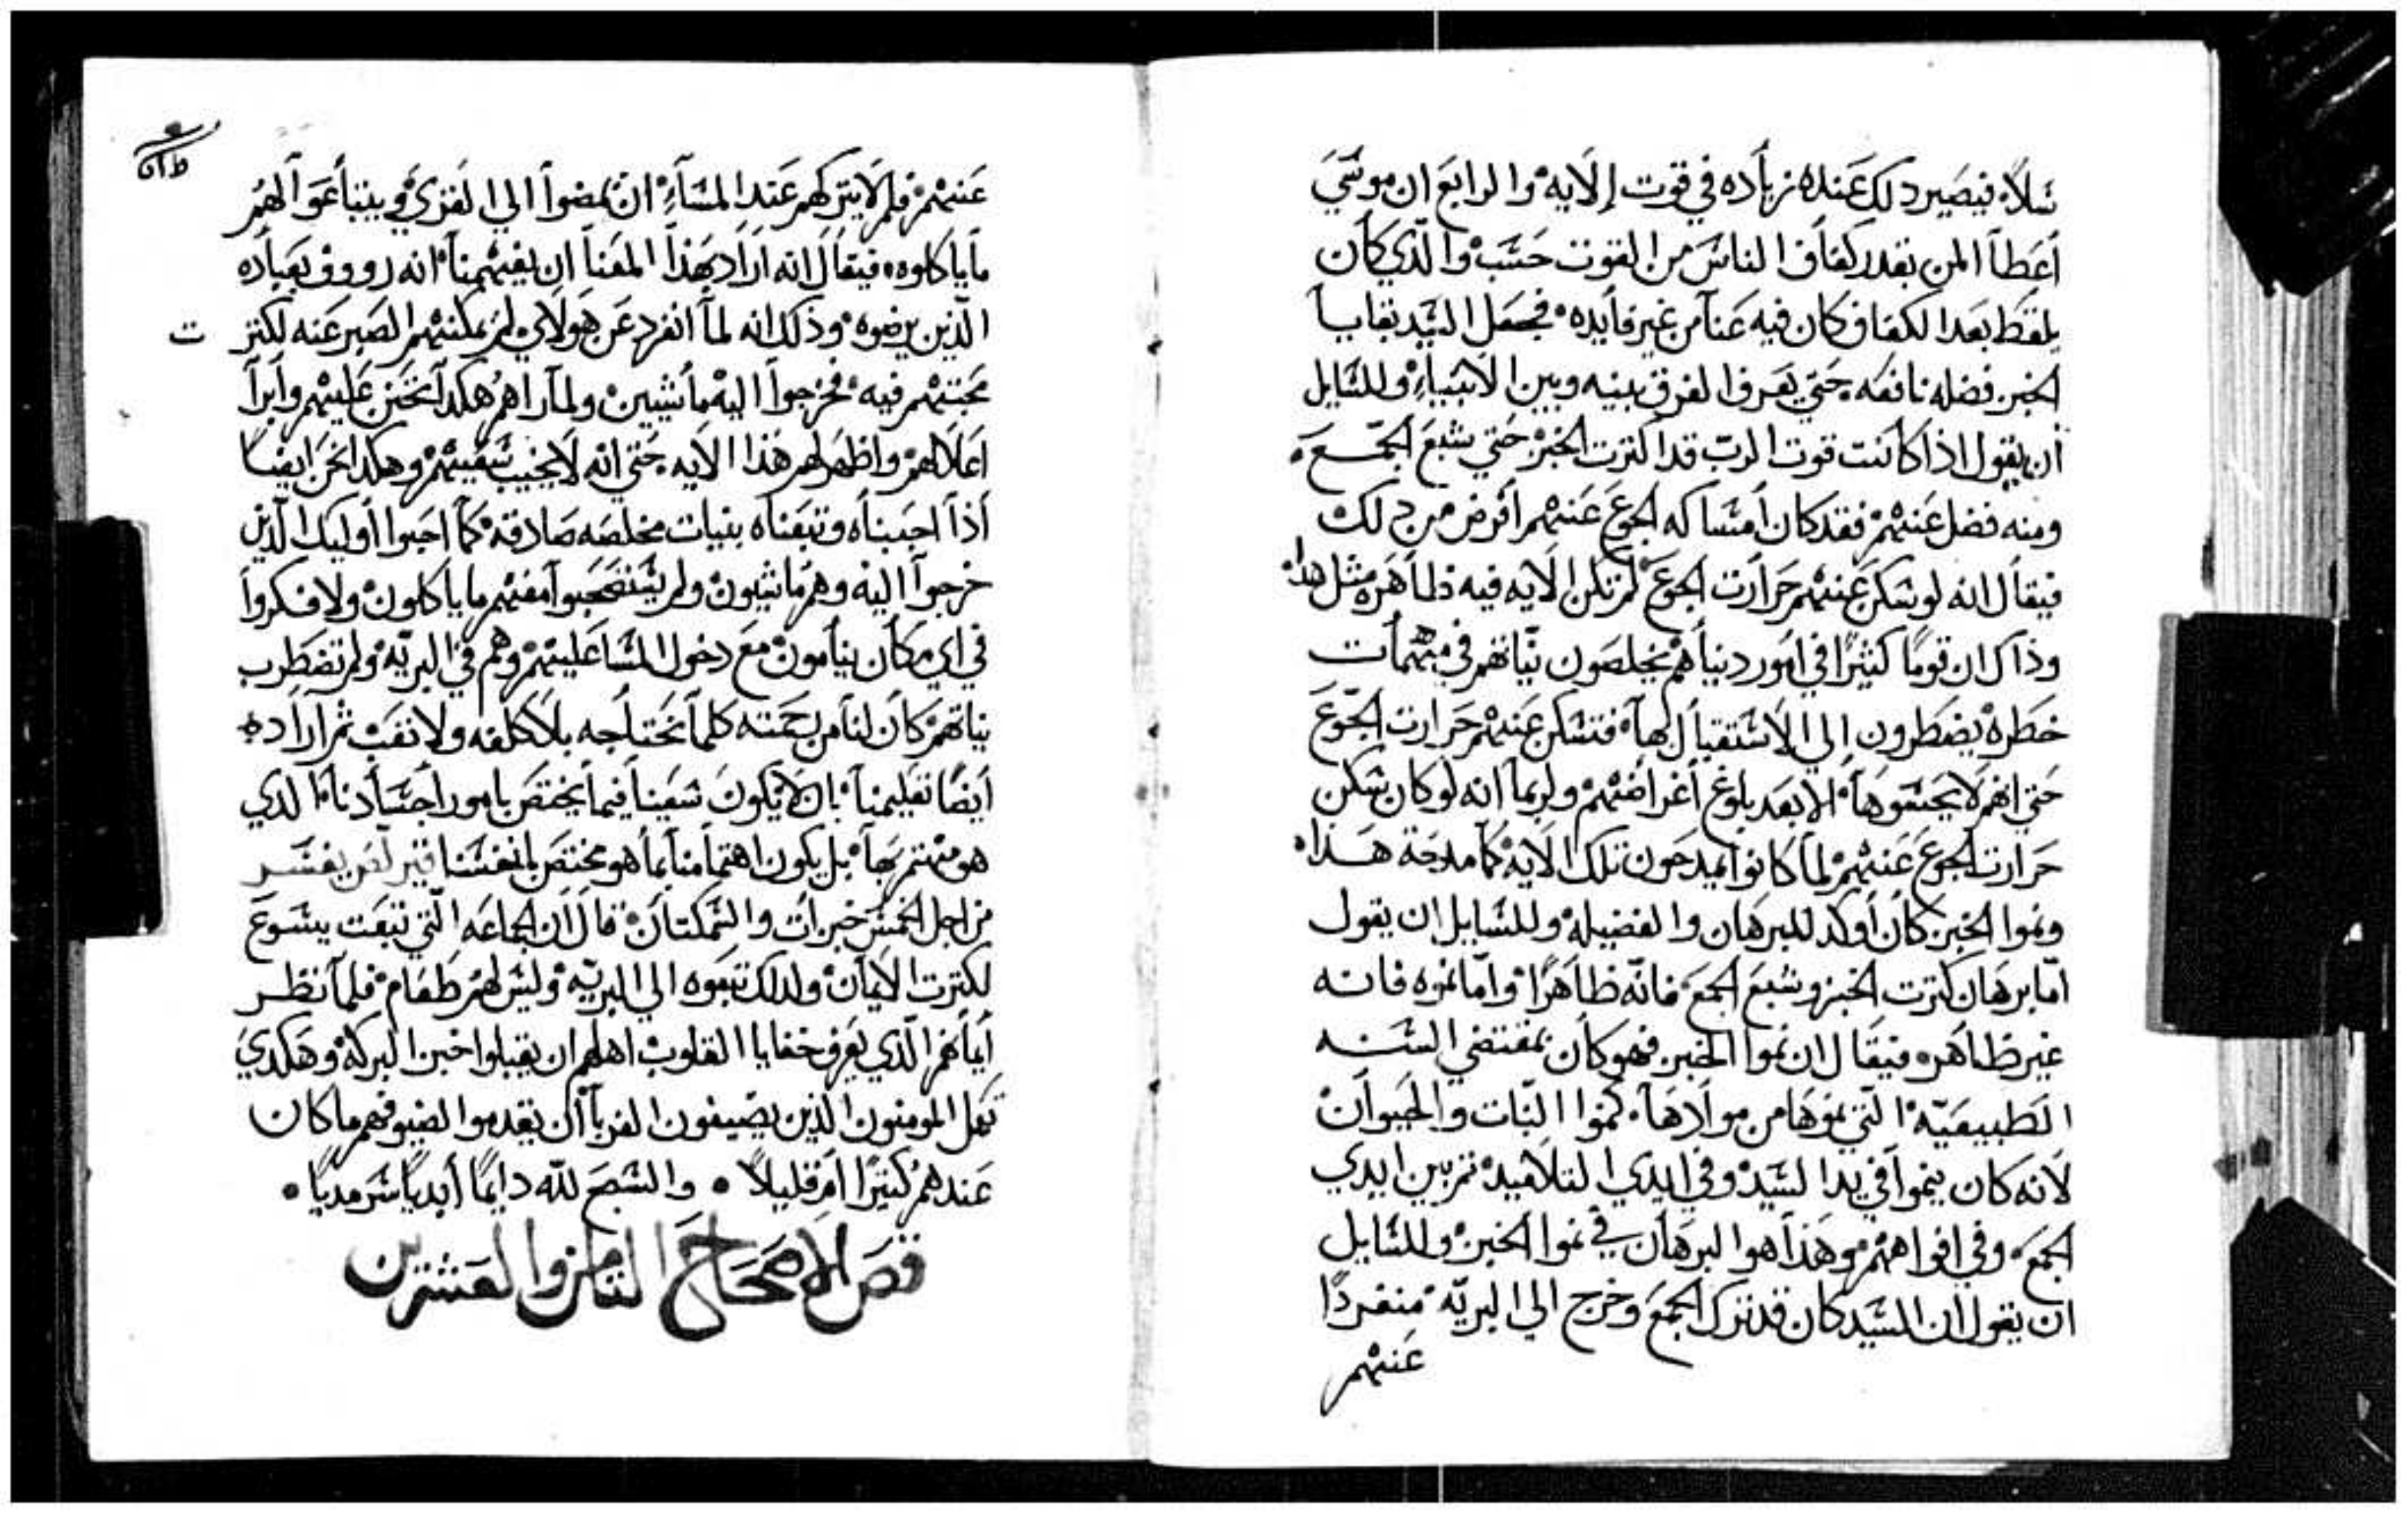 سَلاً، فيصَير دلك عَنده زياده في قوت الايه والرابع ان موسَي
أعَطا المن بقدر كفاف الناسَ من القوت حسَب والذي كان
يلقط بعَد الكفاف كان فيه عَنا من غير فايده فجعَل السَيد بقايا
الخبز فضله نافعَه حَتي يعَرف الفرق بينه وبين الانبياء وللسَايل
أن يقول اذا كانت قوت الربّ قد اكترت الخبز حَتي شبع الجمَع
ومنه فضل عَنهم فقد كان امسَاكه الجوع عَنهم أفرض من دلك
فيقال انه لو سَكن عَنهم حَرارت الجوع لم تكن الايه فيه ظاهَره مثل هدا
وذاك ان قومًا كثيرًا في امور دنياهم يخلصَون نيّاتهم في مهمات
خطره يضطرون إلي الاسَتقبال لها فتسَكن عَنهم حَرارت الجوّع
حَتي انهم لا يحسَوها الا بعَد بلوغ أغراضهم ولربما انه لو كان سَكن
حَرارت الجوع عَنهم لما كانوا يمدحون تلك الايه كما مدحَة هَدا
ونموا الخبز كان أوكد للبرهَان والفضيله وللسَايل ان يقول
امّا برهَان كترت الخبز وشبع الجمع فانّه ظاهَرًا وامّا نموه فانه
غير ظاهَره فيقَال ان نموا الخبز فهو كان بمقتضي السَنه
الطبيعَيّه الّتي نموهَا من موادهَا كنموا النبّات والحيوان
لانه كان ينموا في يد السَيد وفي ايدي التلاميد تم بين ايدي
الجمع وفي افواههم وهَذا هوا البرهَان في نموا الخبز وللسَايل
ان يقول ان السَيد كان قد ترك الجمع وخرج الي البريّه منفردًا
عَنهم
عَنهم فلم لا يتركهم عَند المسَآء ان يمضوا الي القري ويبتاعَوا لهم
ما ياكلوه فيقال انه اراد بهَذا المعَنا ان يفهمنا انه رووف بعَباده
الّذين يرضوه وذلك انه لما انفرد عَن هَولاي لم يمكنهم الصَبر عَنه لكتر
ت
محَبتهم فيه فخرجوا اليه ماشيين ولما راهم هكدا تحَنن عَليهم وأبرأ
اعَلالهم واظهَر لهم هَذا الايه حَتي انه لا يخيب سَعَيهم وهكدا نحَن ايضا
أذا احَببناه وتبعَناه بنيات مخلصَه صَادقه كما احَبوا أوليك الّذين
خرجوا اليه وهم ماشيون ولم يسَتصَحَبوا معَهم ما ياكلون ولا فكروا
في اي مكان ينامون مع دخول المسَا عَليهم وهم في البريّه ولم تضطرب
نياتهم كان لنا من رحَمته كلما نحَتاجه بلا كلفه ولا تعَب ثم اراده
أيضًا تعَليمنا بان لا يكون سَعَينا فيما يختصَ بامور اجسَادنا الدي
هو مهتم بهَا بل يكون اهتمامنا بما هو مختصَ بانفسَنا قيرلصَ يفسَر
من اجل الخمسَ خبزات والسَمكتان قال ان الجماعَه الّتي تبعَت يسَوع
لكترت الايمان ولدلك تبعَوه الي البريّه وليسَ لهم طعَام فلما نظر
أيمانهم الّذي يعَرف خفايا القلوب اهلهم ان يقبلوا خبز البركه وهَكدي
تعَل المومنون الذين يضيفون الغربا أن يقدموا لضيوفهم ما كان
عَندهم كتيرًا ام قليلاً • والسَبح للّه دايمًا أبديًا سَرمديًا •
قصَ الاصحَاح التامن والعَشرين